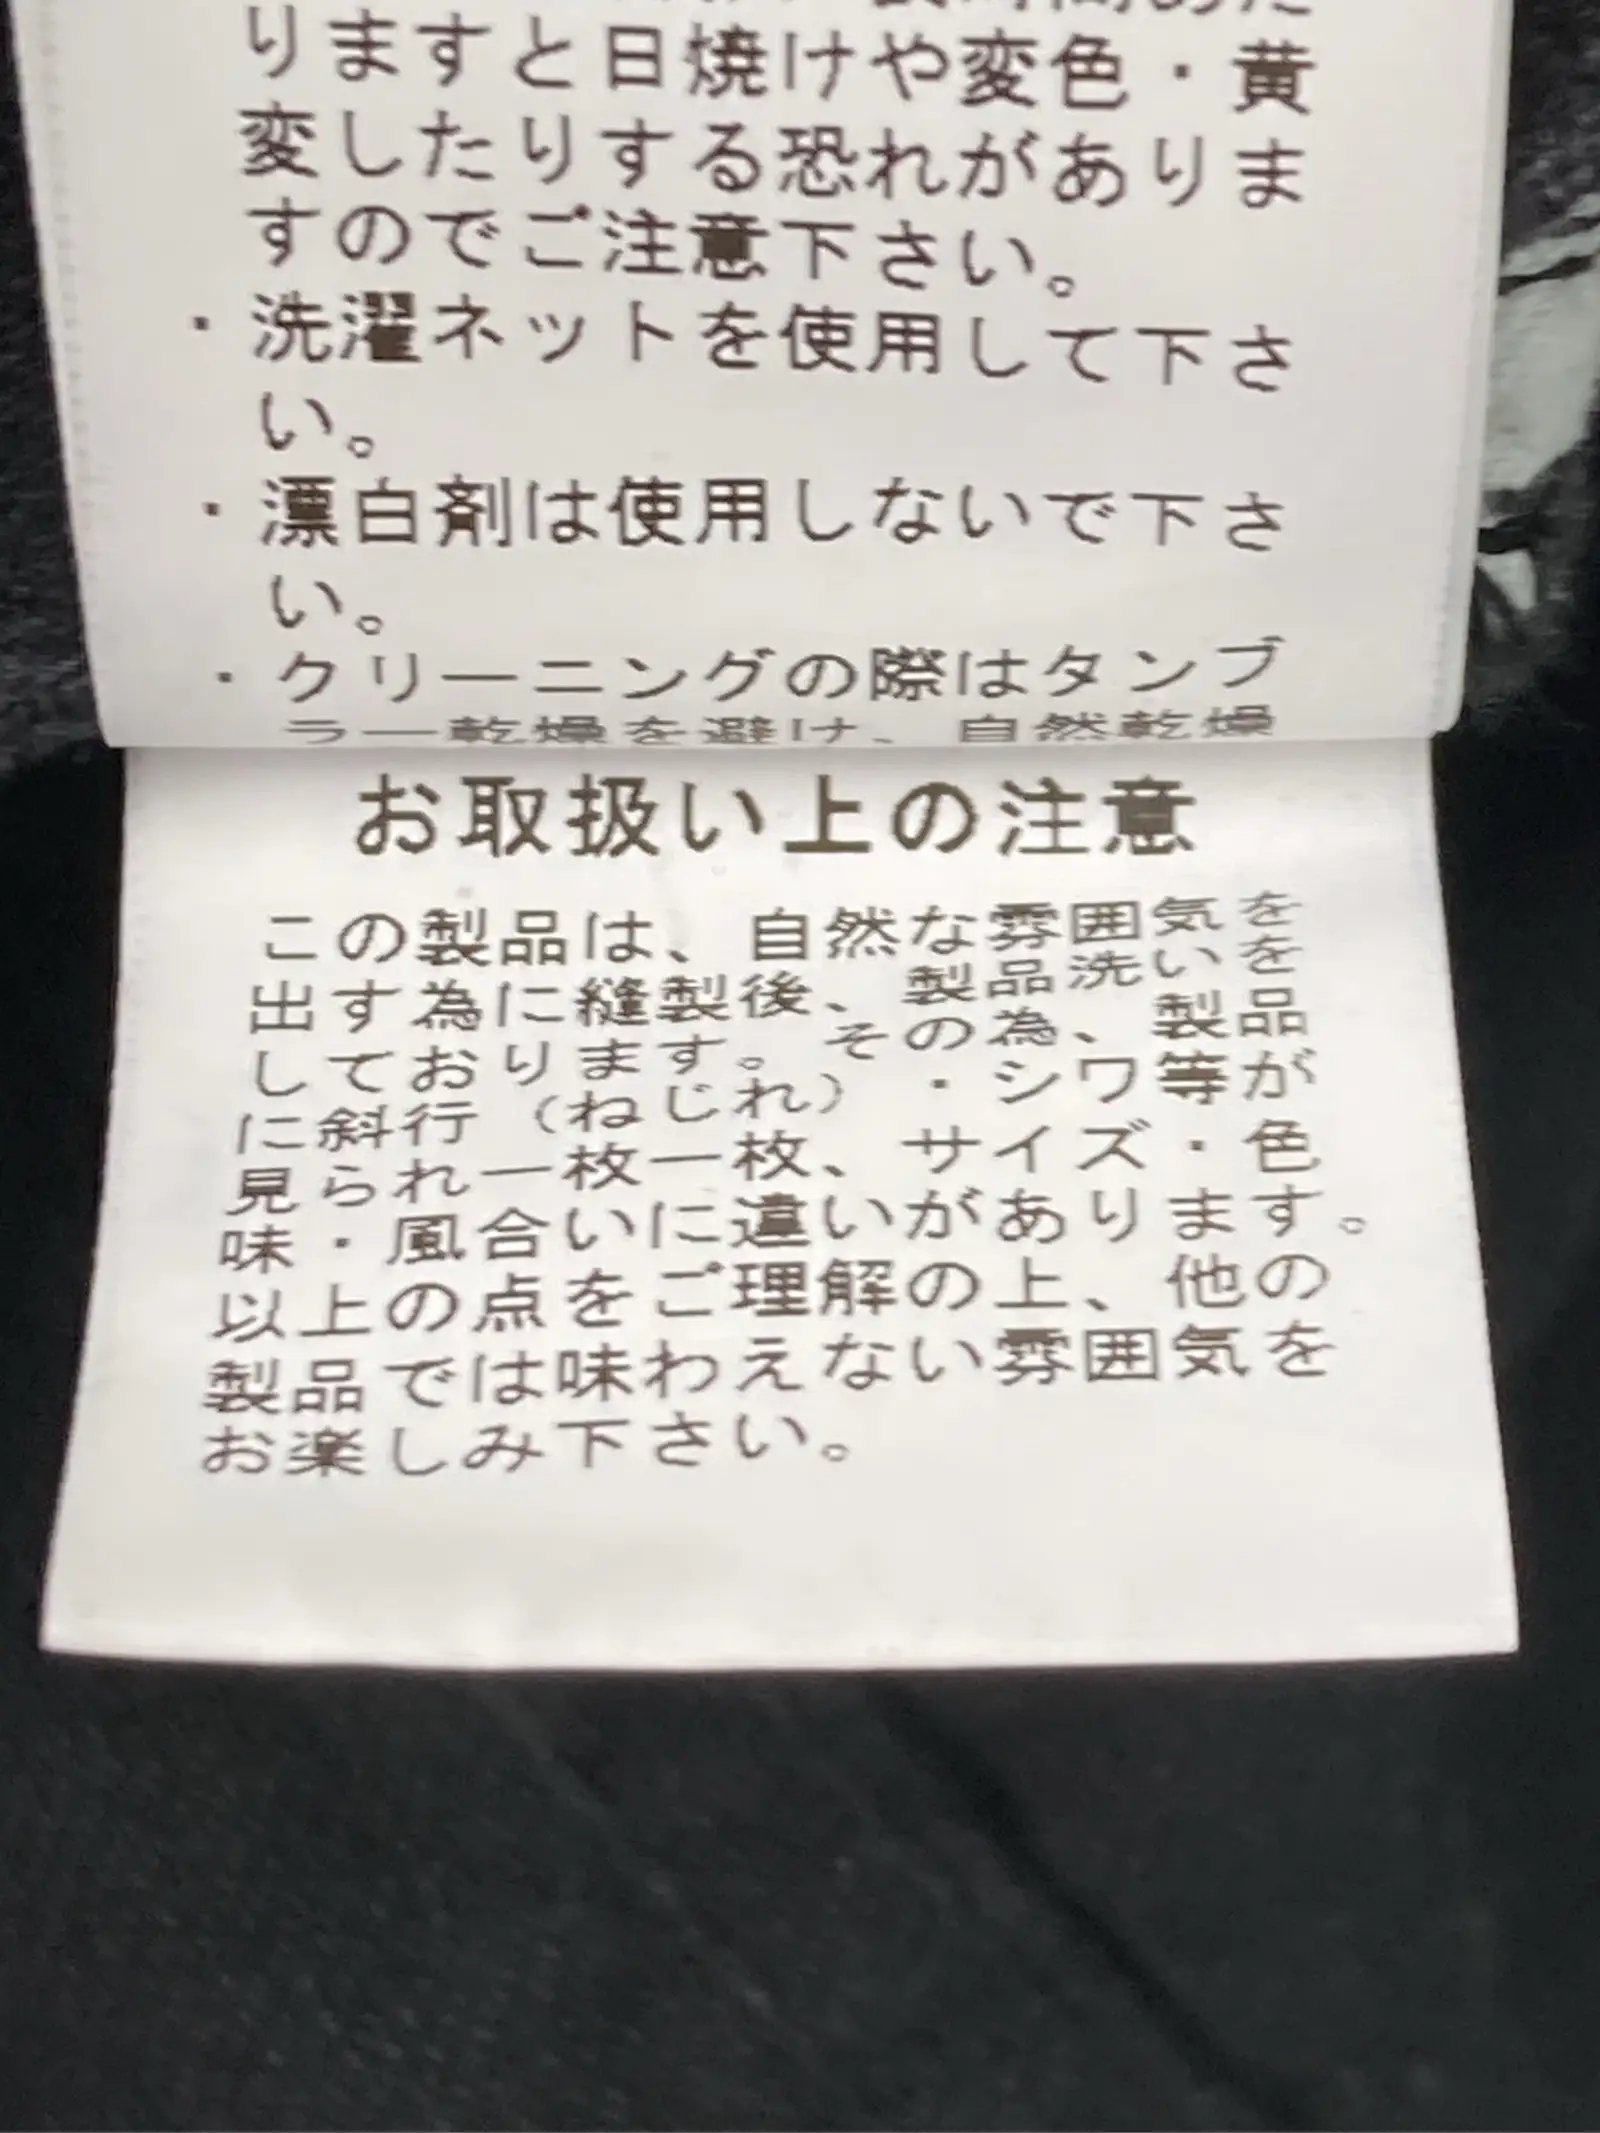 りますと日焼けや変色・黄
変したりする恐れがありま
すのでご注意下さい。
・洗濯ネットを使用して下さ
い。
・漂白剤は使用しないで下さ
い。
・クリーニングの際はタンブ
ラー乾燥を避け、自然乾燥
お取扱い上の注意
この製品は、自然な雰囲気を
出す為に縫製後、製品洗いを
しております。その為、製品
に斜行（ねじれ）・シワ等が
見られ一枚一枚、サイズ・色
味・風合いに違いがあります。
以上の点をご理解の上、他の
製品では味わえない雰囲気を
お楽しみ下さい。